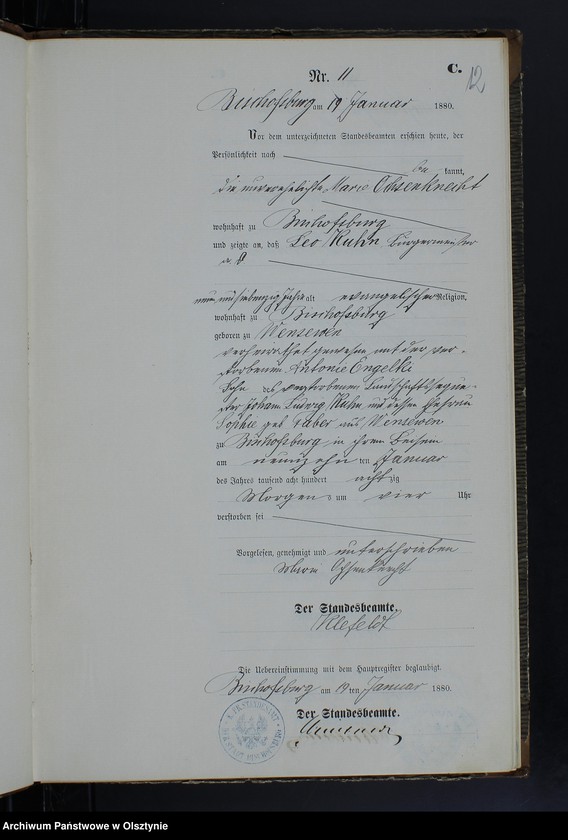 C.
12
Nr. 11
Bischofsburg am 19 Januar 1880.
Vor dem unterzeichneten Standesbeamten erschien heute, der
Persönlichkeit nach
be kannt,
die unverehelichte Marie Ochsenknecht
wohnhaft zu Bischofsburg
und zeigte an, daß Leo Kuhn Bürgermeister
a. D
neun und siebenzig Jahre alt evangelischer Religion,
wohnhaft zu Bischofsburg
geboren zu Wensewen
verheirathet gewesen mit der ver-
storbenen Antonie Engelke
Sohn des verstorbenen Landschaftsseque-
ster Johann Ludwig Kuhn und dessen Ehefrau
Sophie geb Faber aus Wensewen
zu Bischofsburg in ihrem Beisein
am neunzehn ten Januar
des Jahres tausend acht hundert acht zig
Morgen s um vier Uhr
verstorben sei
Vorgelesen, genehmigt und unterschrieben
Marie Ochsenknecht
Der Standesbeamte.
Klefeldt
Die Uebereinstimmung mit dem Hauptregister beglaubigt.
Bischofsburg am 19 ten Januar 1880.
Der Standesbeamte.
Archiwum Państwowe w Olsztynie